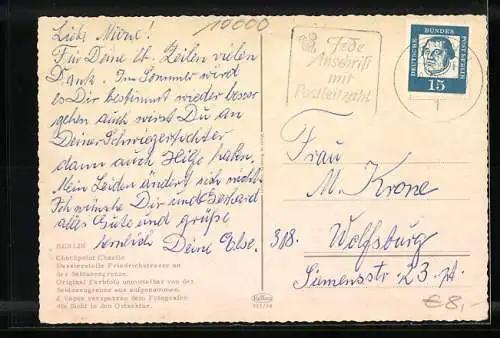 10000
Liebe Mieze!
Für Deine lb. Zeilen vielen
Dank. Im Sommer wird
es Dir bestimmt wieder besser
gehen auch wirst Du an
Deiner Schwiegertochter
dann auch Hilfe haben.
Mein Leiden ändert sich nicht.
Ich wünsche Dir und Gerhard
alles Gute und grüße
herzlich Deine Else.
BERLIN
Checkpoint Charlie
Grenzstelle Friedrichstrasse an
der Sektorengrenze.
Original Farbfoto unmittelbar von der
Sektorengrenze aus aufgenommen.
J Vopos versperren dem Fotografen
die Sicht in den Ostsektor.
Jede
Anschrift
mit
Postleitzahl
DEUTSCHE BUNDES POST BERLIN
15
1
Frau
M. Krone
318. Wolfsburg
Siemensstr. 23. pt.
€ 8,-